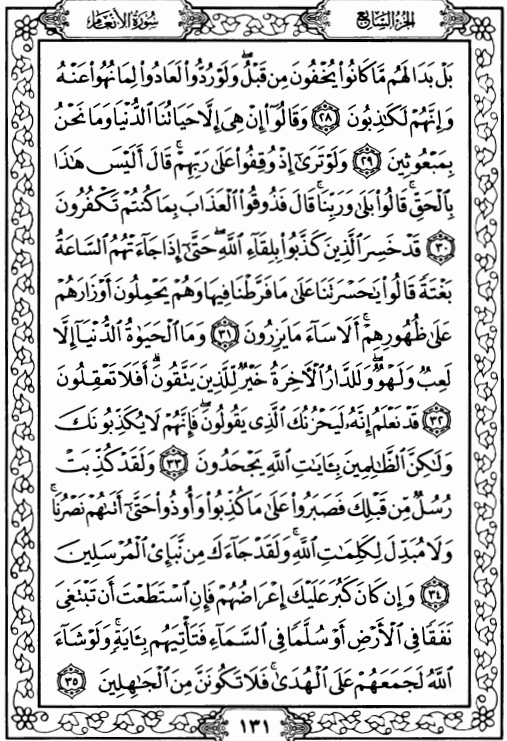 سُورَةُ الأَنعَامِ الجُزءُ السَّابِعُ
بَلْ بَدَا لَهُم مَّا كَانُوا۟ يُخْفُونَ مِن قَبْلُ ۖ وَلَوْ رُدُّوا۟ لَعَادُوا۟ لِمَا نُهُوا۟ عَنْهُ
وَإِنَّهُمْ لَكَـٰذِبُونَ ﴿٢٨﴾ وَقَالُوٓا۟ إِنْ هِىَ إِلَّا حَيَاتُنَا ٱلدُّنْيَا وَمَا نَحْنُ
بِمَبْعُوثِينَ ﴿٢٩﴾ وَلَوْ تَرَىٰٓ إِذْ وُقِفُوا۟ عَلَىٰ رَبِّهِمْ ۚ قَالَ أَلَيْسَ هَـٰذَا
بِٱلْحَقِّ ۚ قَالُوا۟ بَلَىٰ وَرَبِّنَا ۚ قَالَ فَذُوقُوا۟ ٱلْعَذَابَ بِمَا كُنتُمْ تَكْفُرُونَ
﴿٣٠﴾ قَدْ خَسِرَ ٱلَّذِينَ كَذَّبُوا۟ بِلِقَآءِ ٱللَّهِ ۖ حَتَّىٰٓ إِذَا جَآءَتْهُمُ ٱلسَّاعَةُ
بَغْتَةً قَالُوا۟ يَـٰحَسْرَتَنَا عَلَىٰ مَا فَرَّطْنَا فِيهَا وَهُمْ يَحْمِلُونَ أَوْزَارَهُمْ
عَلَىٰ ظُهُورِهِمْ ۚ أَلَا سَآءَ مَا يَزِرُونَ ﴿٣١﴾ وَمَا ٱلْحَيَوٰةُ ٱلدُّنْيَآ إِلَّا
لَعِبٌ وَلَهْوٌ ۖ وَلَلدَّارُ ٱلْـَٔاخِرَةُ خَيْرٌ لِّلَّذِينَ يَتَّقُونَ ۗ أَفَلَا تَعْقِلُونَ
﴿٣٢﴾ قَدْ نَعْلَمُ إِنَّهُۥ لَيَحْزُنُكَ ٱلَّذِى يَقُولُونَ ۖ فَإِنَّهُمْ لَا يُكَذِّبُونَكَ
وَلَـٰكِنَّ ٱلظَّـٰلِمِينَ بِـَٔايَـٰتِ ٱللَّهِ يَجْحَدُونَ ﴿٣٣﴾ وَلَقَدْ كُذِّبَتْ
رُسُلٌ مِّن قَبْلِكَ فَصَبَرُوا۟ عَلَىٰ مَا كُذِّبُوا۟ وَأُوذُوا۟ حَتَّىٰٓ أَتَىٰهُمْ نَصْرُنَا ۚ
وَلَا مُبَدِّلَ لِكَلِمَـٰتِ ٱللَّهِ ۚ وَلَقَدْ جَآءَكَ مِن نَّبَإِى۟ ٱلْمُرْسَلِينَ
﴿٣٤﴾ وَإِن كَانَ كَبُرَ عَلَيْكَ إِعْرَاضُهُمْ فَإِنِ ٱسْتَطَعْتَ أَن تَبْتَغِىَ
نَفَقًا فِى ٱلْأَرْضِ أَوْ سُلَّمًا فِى ٱلسَّمَآءِ فَتَأْتِيَهُم بِـَٔايَةٍ ۚ وَلَوْ شَآءَ
ٱللَّهُ لَجَمَعَهُمْ عَلَى ٱلْهُدَىٰ ۚ فَلَا تَكُونَنَّ مِنَ ٱلْجَـٰهِلِينَ ﴿٣٥﴾
١٣١